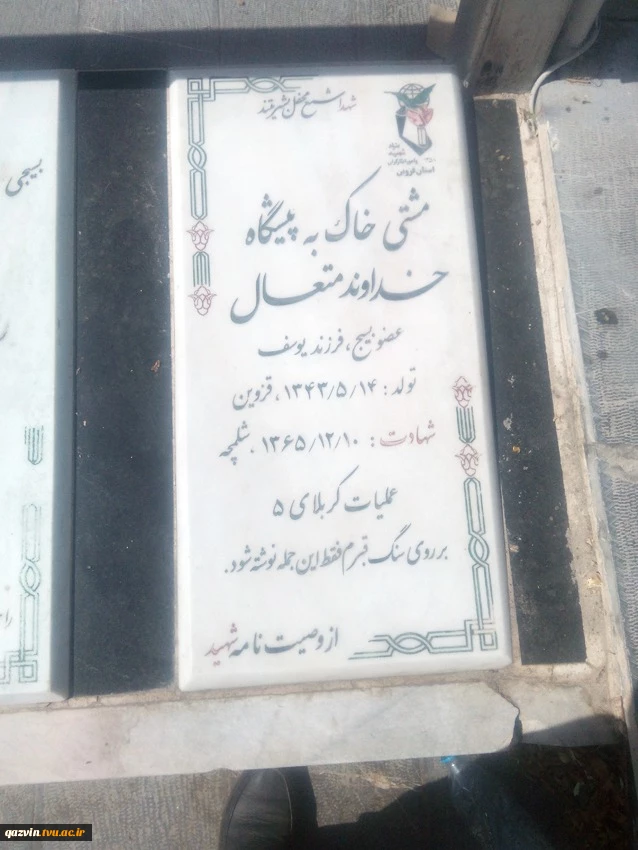 شهدا شمع محفل بشریتند
بنیاد
شهید
و امور ایثارگران
استان قزوین
مشتی خاک به پیشگاه
خداوند متعال
عضو بسیج، فرزند یوسف
تولد: ۱۳۴۳/۵/۱۴، قزوین
شهادت: ۱۳۶۵/۱۲/۱۰، شلمچه
عملیات کربلای ۵
بر روی سنگ قبرم فقط این جمله نوشته شود.
از وصیت نامه شهید
بسیجی
qazvin.tvu.ac.ir